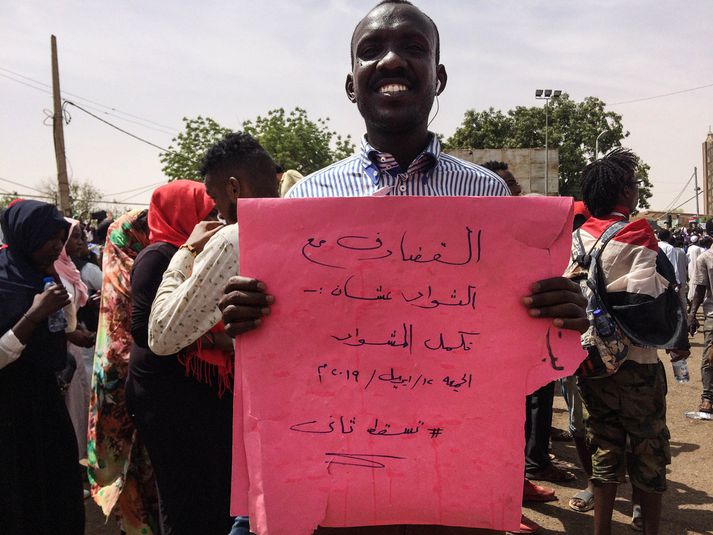 القضارف مع
الثوار عشان :-
نكمل المشوار
الجمعة ١٢/ابريل/٢٠١٩م
#تسقط_تاني